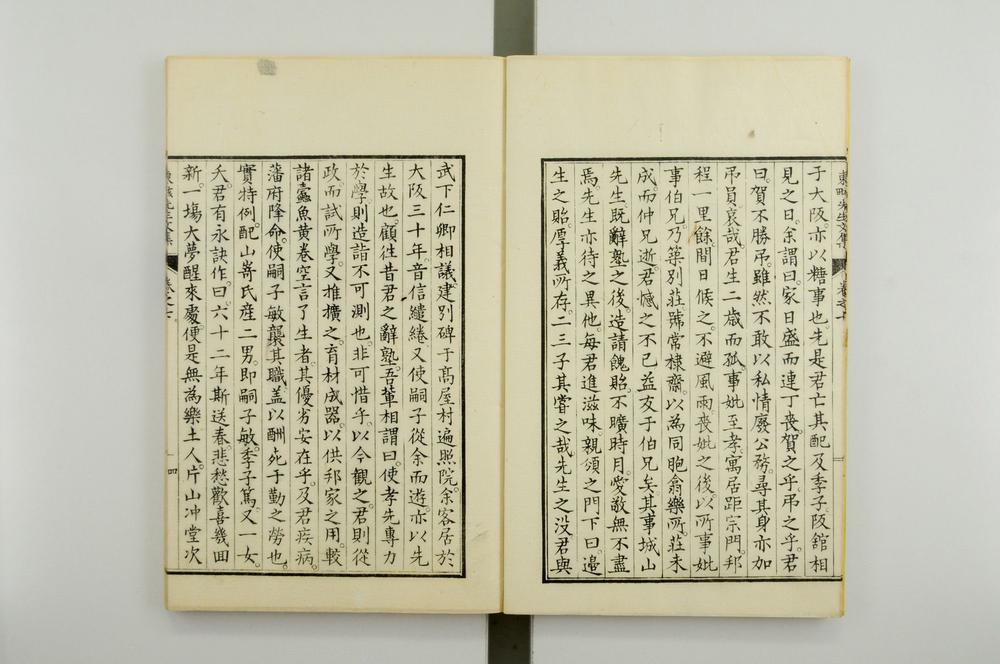 于大阪。亦以糖事也。先是君亡其配及季子。阪舘相
見之日。余謂曰。家日盛而連丁喪。賀之乎。弔之乎。君
曰。賀不勝弔。雖然不敢以私情廢公務。尋其身亦加
弔員。哀哉。君生二歲而孤。事妣至孝。寓居距宗門。邦
程一里餘。間日候之。不避風雨。喪妣之後。以所事妣
事伯兄。乃築別莊。號常棣齋。以為同胞翕樂所。莊未
成而仲兄逝。君憾之不已。益友于伯兄矣。其事城山
先生。既辭塾之後。造請餽貽。不曠時月。愛敬無不盡
焉。先生亦待之異他。每君進滋味。親頒之門下曰。邉
生之貽。厚義所存。二三子其嘗之哉。先生之没。君與
武下仁卿相議。建別碑于髙屋村遍照院。余客居於
大阪三十年。音信繾綣。又使嗣子從余而遊。亦以先
生故也。顧往昔君之辭塾。吾輩相謂曰。使孝先專力
於學。則造詣不可測也。非可惜乎。以今觀之。君則從
政。而試所學。又推擴之。育材成器。以供邦家之用。較
諸蠹魚黃卷空言了生者。其優劣安在乎。及君疾病。
藩府降命。使嗣子敏襲其職。盖以酬死于勤之勞也。
實特例。配山嵜氏產二男。即嗣子敏。季子篤。又一女。
夭。君有永訣作曰。六十二年斯送春。悲愁歡喜幾回
新。一塲大夢醒來處。便是無為樂土人。片山冲堂次
四